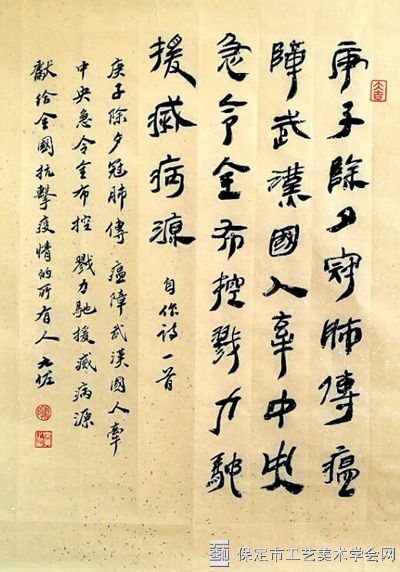 庚子除夕冠肺傳瘟
障武漢國人牽中央
急令全布控戮力馳
援滅病源 自作詩一首
庚子除夕冠肺傳 瘟障武漢國人牽
中央急令全布控 戮力馳援滅病源
獻給全國抗擊疫情的所有人
保定市工艺美术学会网